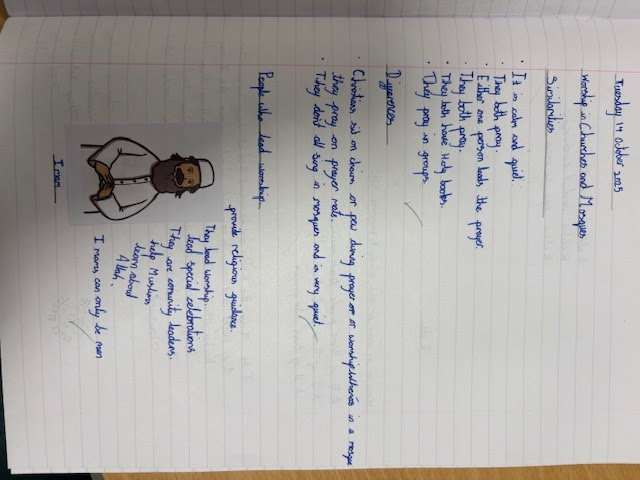 Tuesday 14 October 2025
Worship in Churches and Mosques
Similarities
• It is calm and quiet.
• They both pray.
• Either one person leads the prayer.
• They both pray.
• They both have Holy books.
• They pray in groups.
Differences
• Christians sit on chairs or pew during prayer or worship in a mosque
they pray on prayer mats.
• They don't all sing in mosques and is very quiet.
People who lead worship...
provide religious guidance.
They lead worship
lead special celebrations
They are comunity leaders.
help Muslims
learn about
Allah.
Imams can only be men
Imam